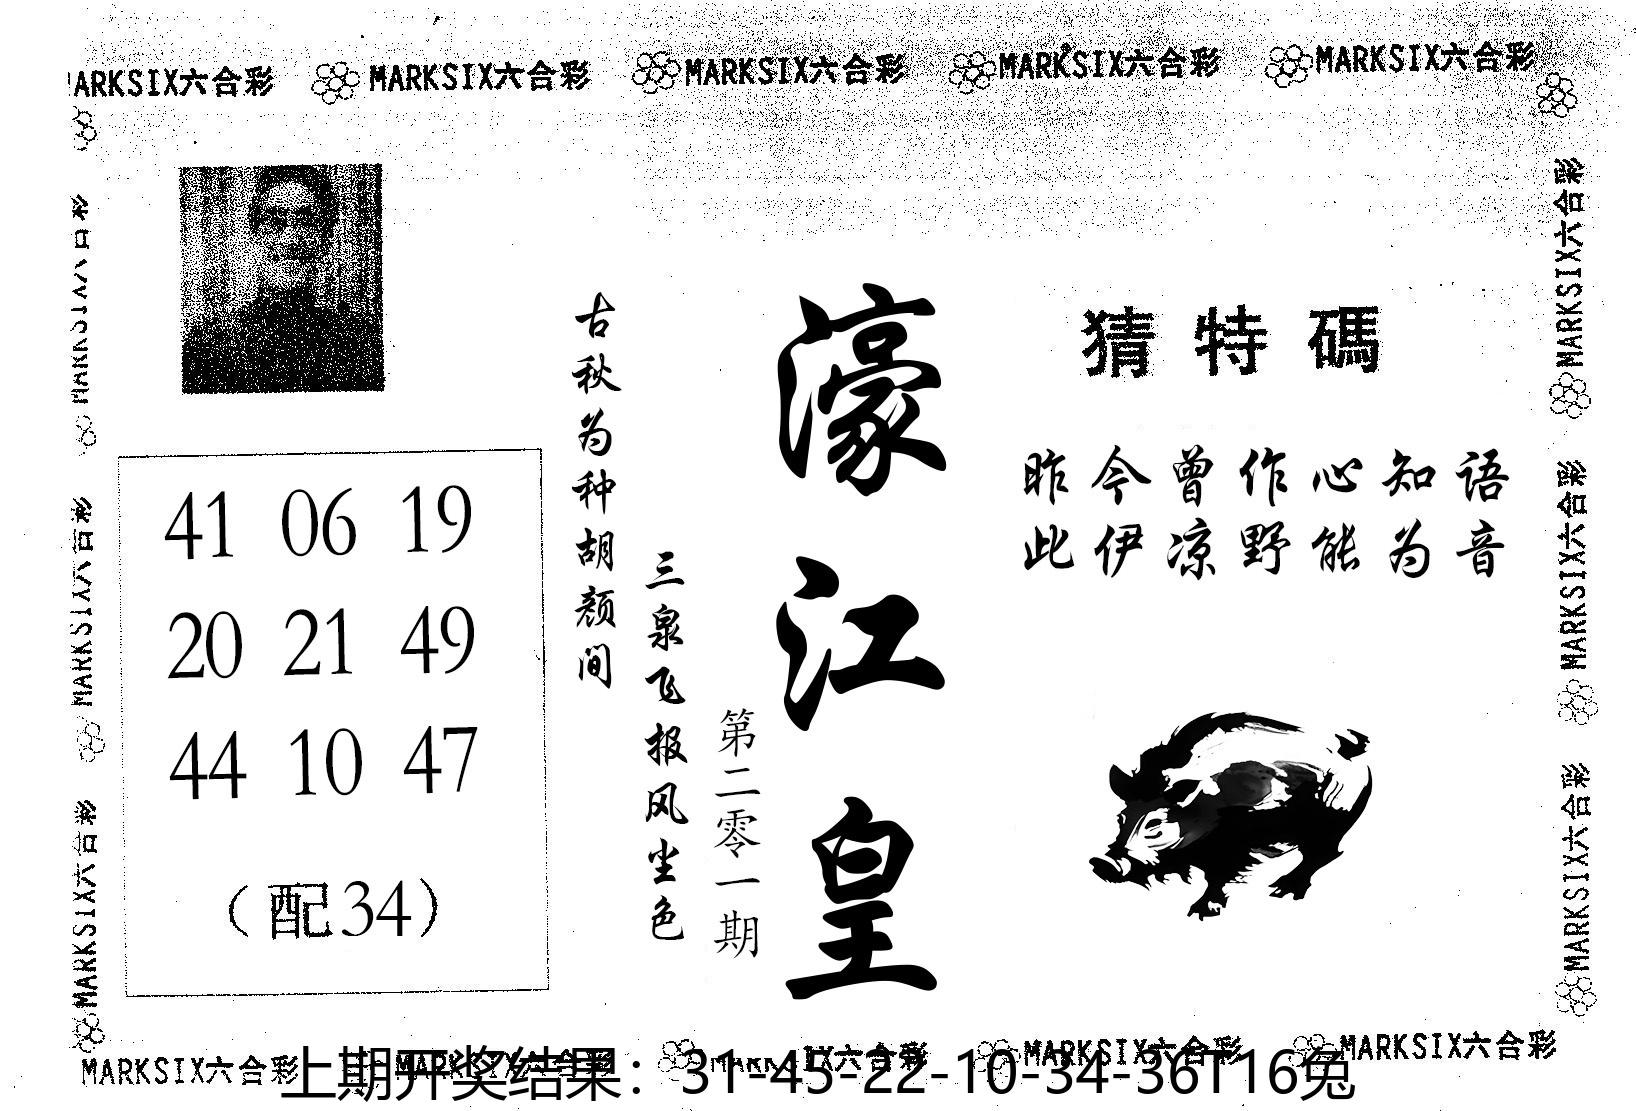 MARKSIX六合彩 MARKSIX六合彩 MARKSIX六合彩 MARKSIX六合彩 MARKSIX六合彩
猜特碼
昨今曾作心知语
此伊凉野能为音
濠江皇
第二零一期
三泉飞报风尘色
古秋为种胡颜间
41 06 19
20 21 49
44 10 47
(配34)
MARKSIX六合彩
MARKSIX六合彩
MARKSIX六合彩
MARKSIX六合彩
MARKSIX六合彩
MARKSIX六合彩
MARKSIX六合彩 MARKSIX六合彩 MARKSIX六合彩 MARKSIX六合彩 MARKSIX六合彩
上期开奖结果：31-45-22-10-34-36T16兔